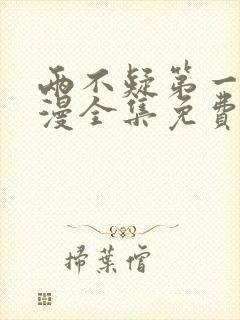 兩不疑第一
漫全集免費
掃葉僧